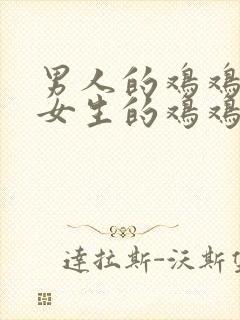 男人的鸡鸡
女生的鸡鸡
達拉斯-沃斯堡